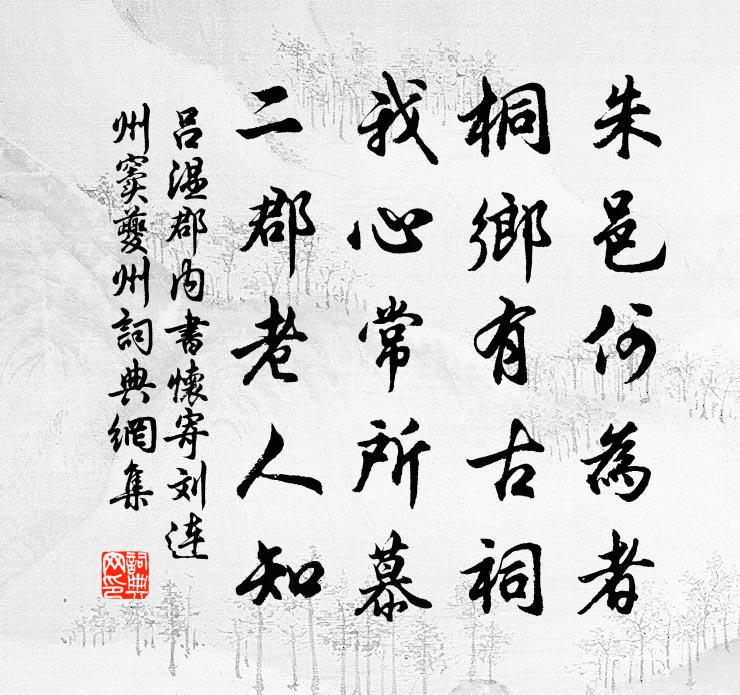 朱邑何為者
桐鄉有古祠
我心常所慕
二郡老人知
吕溫郡内書懷寄刘连
州窦夔州詞典網集
詞典网印